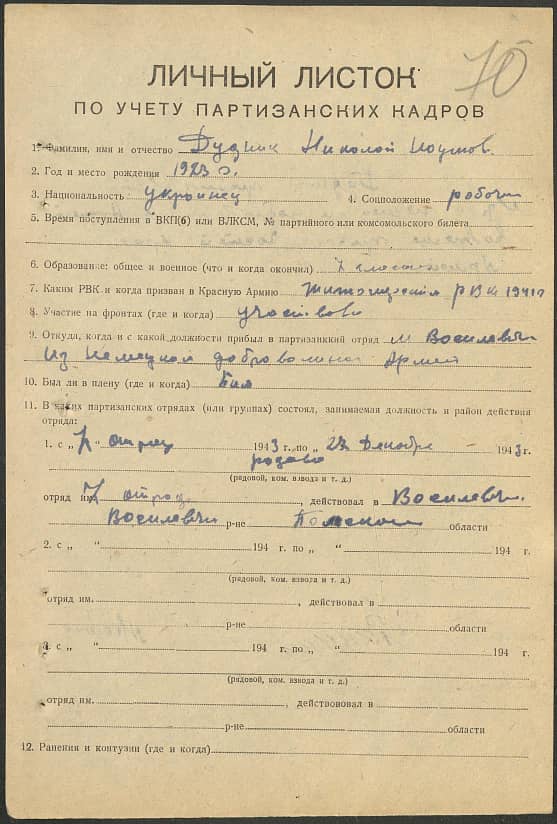 70
ЛИЧНЫЙ ЛИСТОК
ПО УЧЕТУ ПАРТИЗАНСКИХ КАДРОВ
1. Фамилия, имя и отчество Дудник Николай Наумов.
2. Год и место рождения 1923 г.
3. Национальность украинец 4. Соцположение рабочи
5. Время поступления в ВКП(б) или ВЛКСМ, № партийного или комсомольского билета
6. Образование: общее и военное (что и когда окончил) 7 классов
7. Каким РВК и когда призван в Красную Армию РВК 1941 г
8. Участие на фронтах (где и когда) участвовал
9. Откуда, когда и с какой должности прибыл в партизанский отряд м Василевичи
из немецкой добровольной Армей
10. Был ли в плену (где и когда) Был
11. В каких партизанских отрядах (или группах) состоял, занимаемая должность и район действия
отряда:
1. с „ 7 отряд 1943 г. по „ 27 Декабря 1943 г.
(рядовой, ком. взвода и т. д.)
отряд им. 7 отряд, действовал в Василевичи.
Василевичи р-не области
2. с „ “ 194 г. по „ “ 194 г.
(рядовой, ком. взвода и т. д.)
отряд им. , действовал в
р-не области
3. с „ “ 194 г. по „ “ 194 г.
(рядовой, ком. взвода и т. д.)
отряд им. , действововал в
р-не области
12. Ранения и контузии (где и когда)